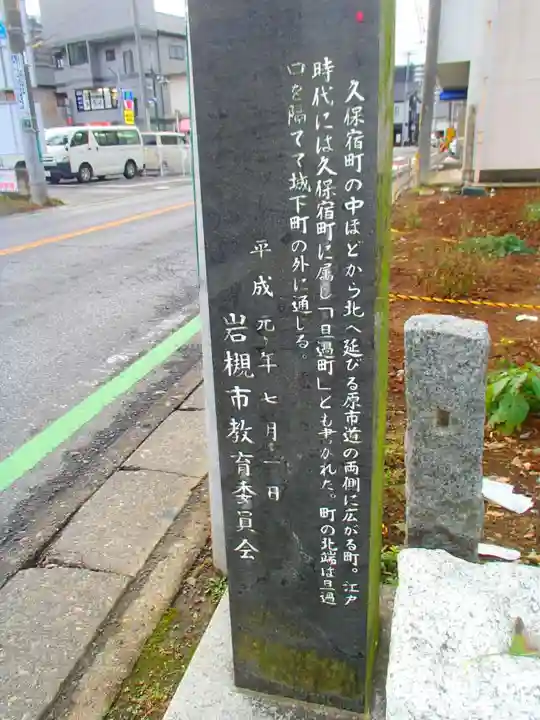 久保宿町の中ほどから北へ延びる原市道の両側に広がる町。江戸
時代には久保宿町に属し「旦過町」とも書かれた。町の北端は旦過
口を隔てて城下町の外に通じる。
平成元年七月一日
岩槻市教育委員会